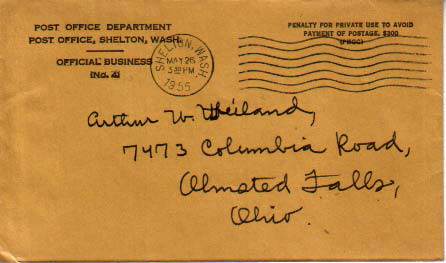 POST OFFICE DEPARTMENT
POST OFFICE, SHELTON, WASH.
OFFICIAL BUSINESS
(No. 4)
SHELTON, WASH.
MAY 26
3 PM
1955
PENALTY FOR PRIVATE USE TO AVOID
PAYMENT OF POSTAGE, $300
(PMGC)
Arthur W. Weiland,
7473 Columbia Road,
Olmsted Falls,
Ohio.